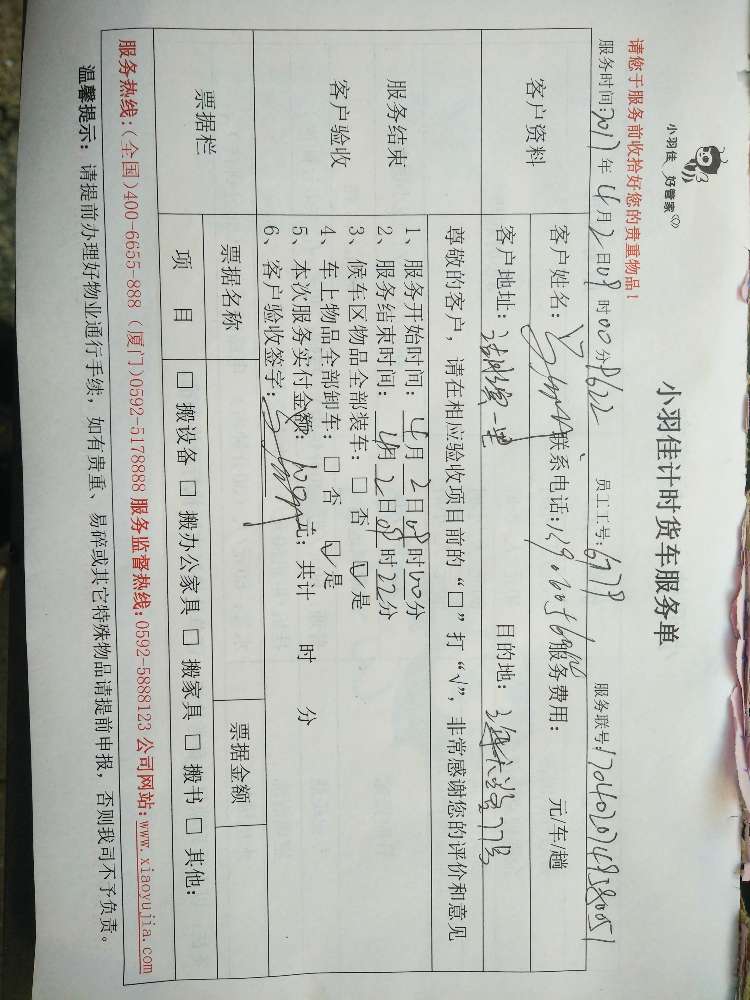 小羽佳 好管家
小羽佳计时货车服务单
请您于服务前收拾好您的贵重物品！
服务时间:2017年4月2日09时00分 员工工号: 服务联号:
客户资料
客户姓名: 联系电话: 服务费用: 元/车/趟
客户地址: 目的地:
服务结束
客户验收
尊敬的客户，请在相应验收项目前的“□”打“√”，非常感谢您的评价和意见
1、服务开始时间：4月2日09时00分
2、服务结束时间：4月2日09时22分
3、候车区物品全部装车：□ 否 ☑ 是
4、车上物品全部卸车：□ 否 ☑ 是
5、本次服务实付金额：100元；共计 时 分
6、客户验收签字：
票据栏
票据名称 票据金额
项目 □ 搬设备 □ 搬办公家具 □ 搬家具 □ 搬书 □ 其他:
服务热线:(全国)400-6655-888 (厦门)0592-5178888 服务监督热线:0592-5888123 公司网站:www.xiaoyujia.com
温馨提示：请提前办理好物业通行手续，如有贵重、易碎或其它特殊物品请提前申报，否则我司不予负责。